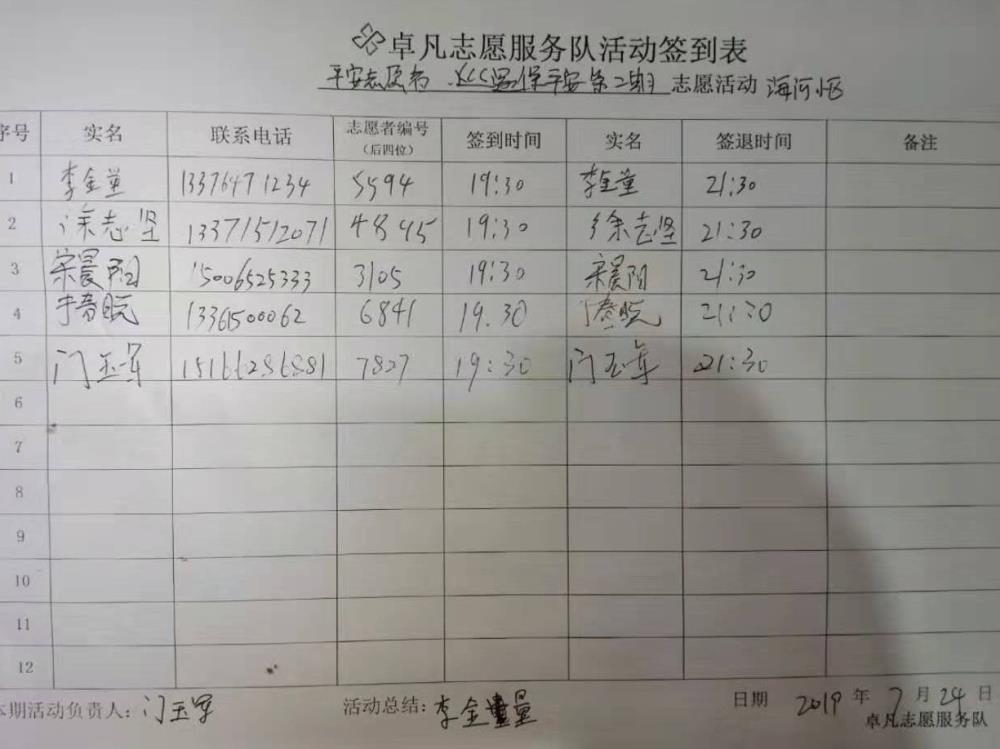 卓凡志愿服务队活动签到表
平安志愿者 保平安第二期 志愿活动 海河
序号 实名 联系电话 志愿者编号（后四位） 签到时间 实名 签退时间 备注
1 李金 13376471234 5594 19:30 李金 21:30
2 徐志坚 13371512071 4845 19:30 徐志坚 21:30
3 宋晨阳 15006525333 3105 19:30 宋晨阳 21:30
4 13361500062 6841 19.30 21:30
5 门玉军 15166286881 7827 19:30 门玉军 21:30
6
7
8
9
10
11
12
本期活动负责人: 门玉军 活动总结: 李金 日期 2019 年 7 月 24 日
卓凡志愿服务队